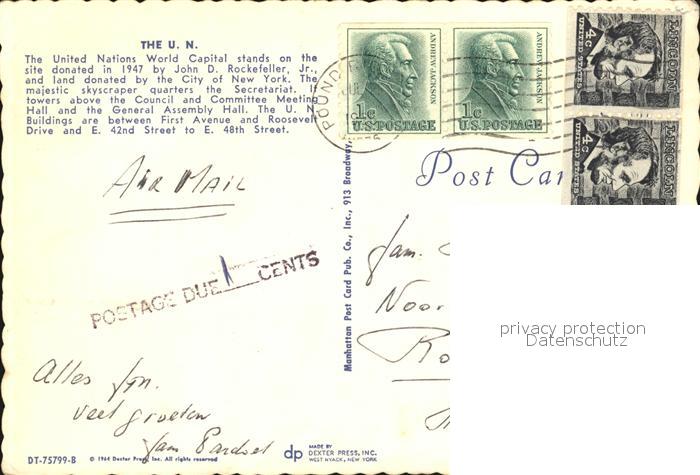 THE U. N.
The United Nations World Capital stands on the
site donated in 1947 by John D. Rockefeller, Jr.,
and land donated by the City of New York. The
majestic skyscraper quarters the Secretariat. I
towers above the Council and Committee Meeting
Hall and the General Assembly Hall. The U. N.
Buildings are between First Avenue and Roosevelt
Drive and E. 42nd Street to E. 48th Street.
AIR MAIL
POSTAGE DUE CENTS
Alles fyn.
veel groeten
DT-75799-B © 1964 Dexter Press, Inc. All rights reserved
Manhattan Post Card Pub. Co., Inc., 913 Broadway,
dp MADE BY
DEXTER PRESS, INC.
WEST NYACK, NEW YORK
POUND
1c
U.S.POSTAGE
ANDREW JACKSON
1c
U.S.POSTAGE
ANDREW JACKSON
4c
UNITED STATES
LINCOLN
4c
UNITED STATES
LINCOLN
Post Car
Fam.
Noor
Ro
privacy protection
Datenschutz